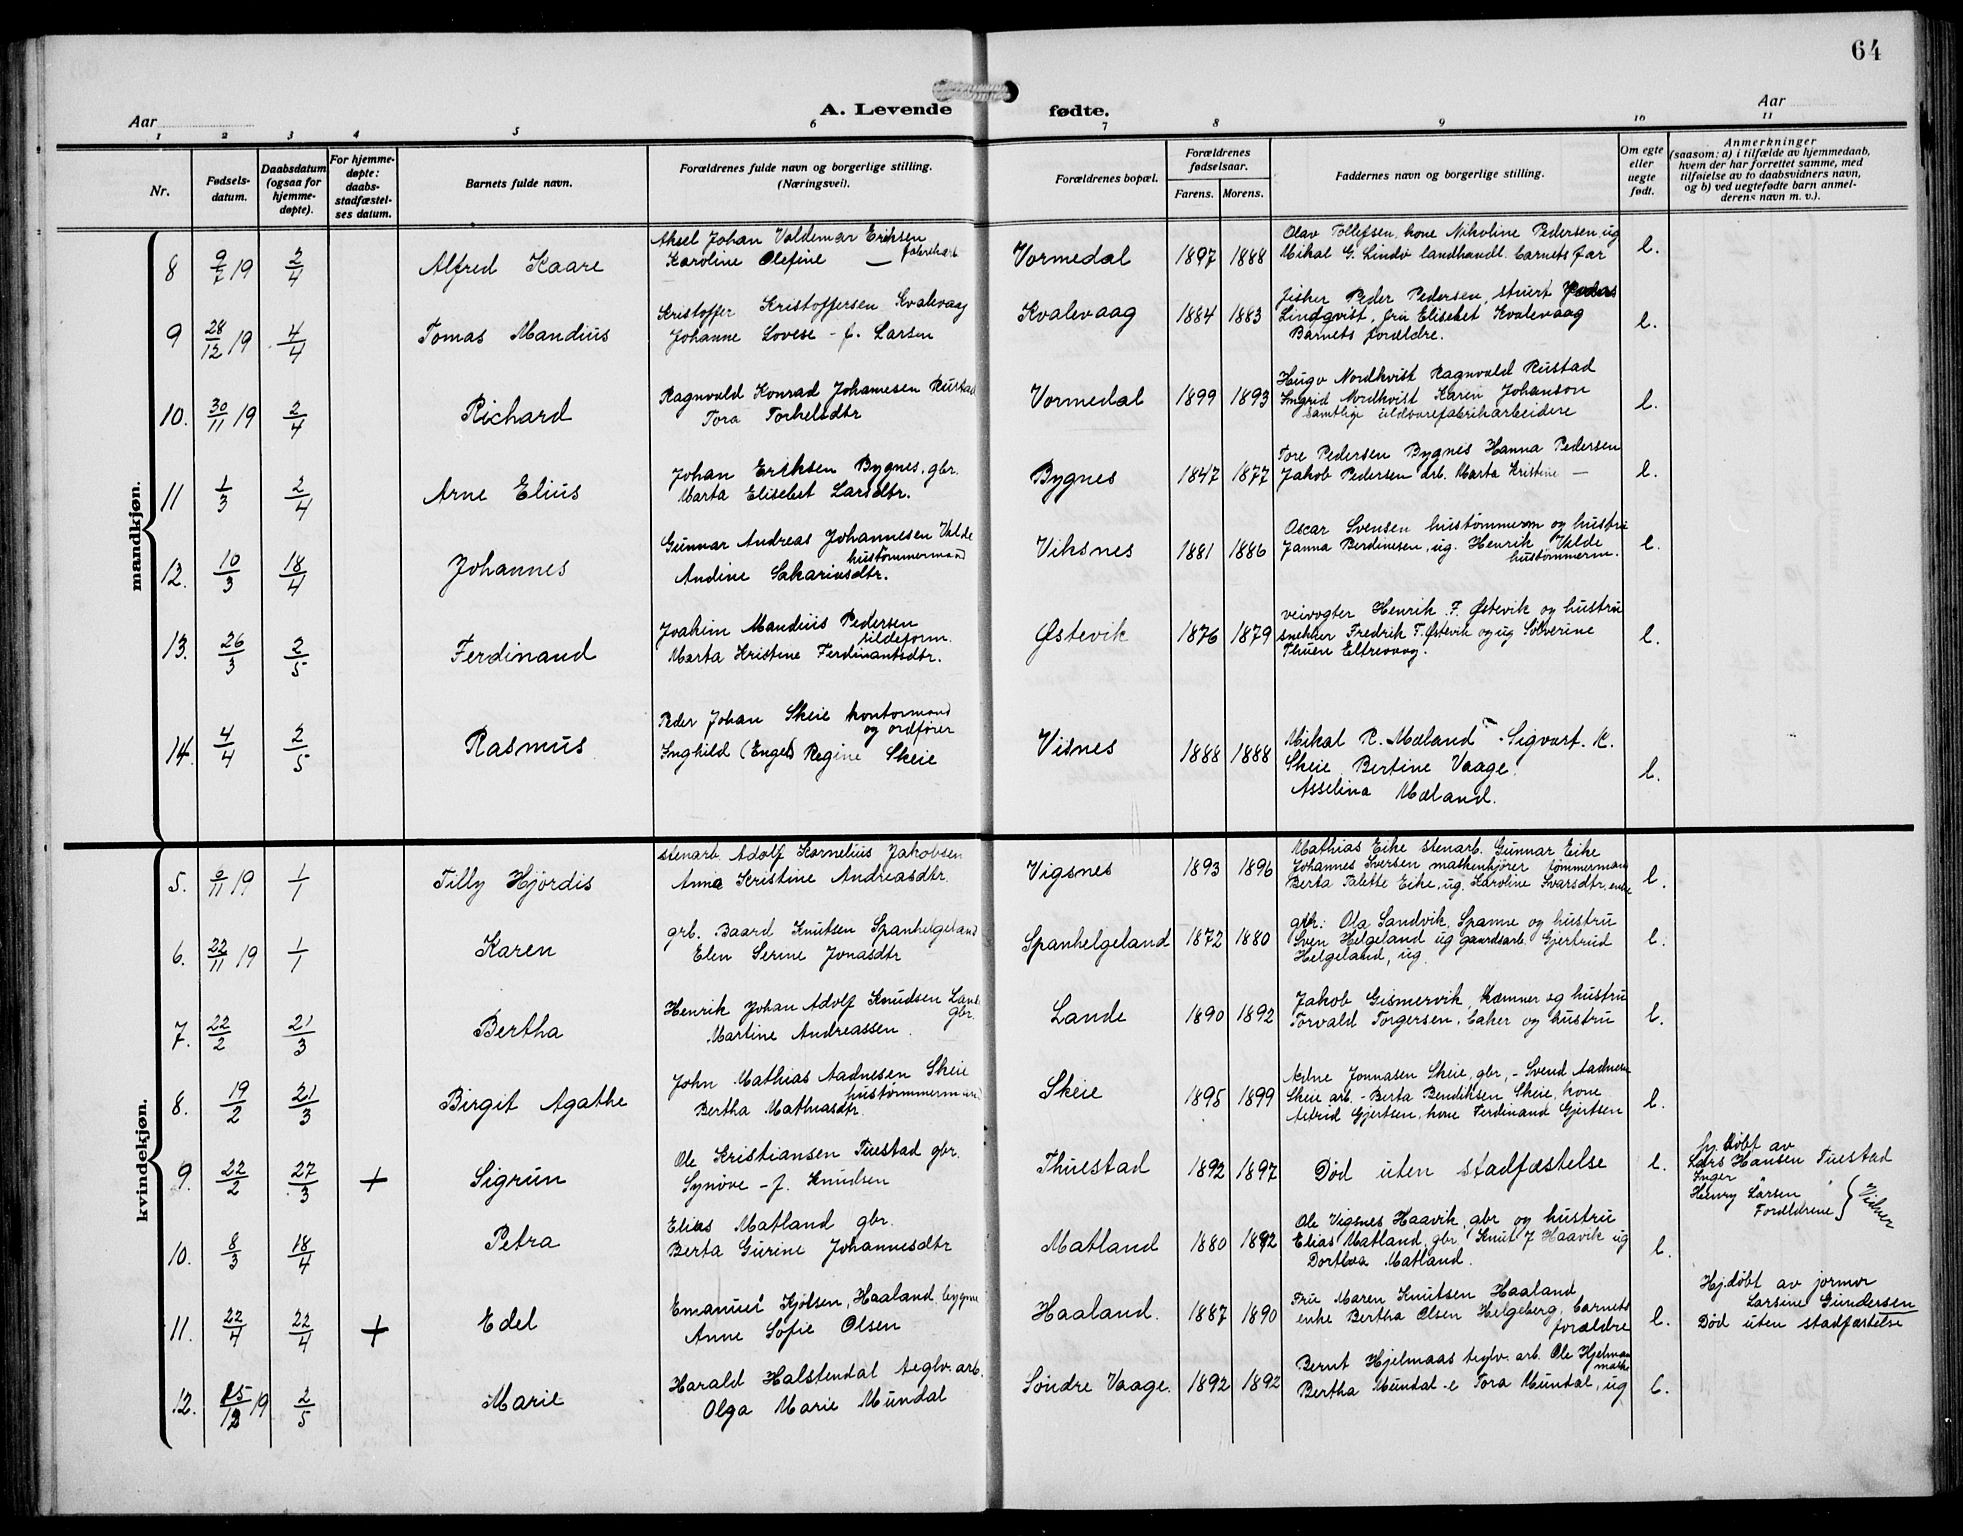 64
A. Levende fødte.
Aar
Aar
1 2 3 4 5 6 7 8 9 10 11
Nr.
Fødsels-
datum.
Daabsdatum
(ogsaa for
hjemme-
døpte).
For hjemme-
døpte:
daabs-
stadfæstel-
ses datum.
Barnets fulde navn.
Forældrenes fulde navn og borgerlige stilling.
(Næringsvei).
Forældrenes bopæl.
Forældrenes
fødselsaar.
Farens. Morens.
Faddernes navn og borgerlige stilling.
Om egte
eller
uegte
født.
Anmerkninger
(saasom: a) i tilfælde av hjemmedaab,
hvem der har forrettet samme, med
tilføielse av to daabsvidners navn,
og b) ved uegtefødte barn anmel-
derens navn m. v.).
mandkjøn.
8 9/7 19 2/4 Alfred Kaare
Aksel Johan Valdemar Eriksen
Karoline Olefine —
Vormedal 1897 1888
Olav Tollefsen, kone Nikoline Pedersen, ug
Mikal G. Lindø landhandl. barnets far
e.
9 28/12 19 4/4 Tomas Mandius
Kristoffer Kristoffersen Kvalevaag
Johanne Lovese - f. Larsen
Kvalevaag 1884 1883
fisker Peder Pedersen, stuert
Lindqvist, fru Elisebet Kvalevaag
Barnets forældre.
e.
10. 30/11 19 2/4 Richard
Ragnvald Konrad Johannesen Rustad
Tora Torkelsdtr
Vormedal 1899 1893
Hugo Nordkvist Ragnvald Rustad
Ingrid Nordkvist Karen Johanson
samtlige uldvarefabrikarbeidere
e.
11 1/3 2/4 Arne Elius
Johan Eriksen Bygnes, gbr.
Marta Elisebet Larsdtr.
Bygnes 1847 1877
Tore Pedersen Bygnes Hanna Pedersen
Jakob Pedersen arb. Marta Kristine —
e.
12. 10/3 18/4 Johannes
Gunnar Andreas Johannesen Valde
hustømmermand
Andine Sakariasdtr.
Viksnes 1881 1886
Oscar Svensen hustømmerm og hustru
Janna Berdinesen, ug. Henrik Valde
hustømmerm.
e.
13. 26/3 2/5 Ferdinand
Joakim Mandius Pedersen
sildeform.
Marta Kristine Ferdinantsdtr.
Østevik 1876 1879
veivogter Henrik F. Østevik og hustru
snekker Fredrik T. Østevik og ug Sølverine
Thuen Eltrevaag.
e.
14. 4/4 2/5 Rasmus
Peder Johan Skeie kontormand
og ordfører
Inghild (Engel) Regine Skeie
Visnes 1888 1888
Mikal R. Mæland - Sigvart. K.
Skeie Bertine Vaage.
Asselina Mæland.
e.
kvindekjøn.
5. /11 19 1/1 Tilly Hjørdis
stenarb. Adolf Kornelius Jakobsen
Anna Kristine Andreasdtr.
Vigsnes 1893 1896
Mathias Eike stenarb. Gunnar Eike
Johannes Iversen maskenkjører tømmermand
Berta Talette Eike, ug. Karoline Ivarsdtr, enke
e.
6. 22/11 19 1/1 Karen
grb. Baard Knutsen Spanhelgeland
Elen Serine Jonasdtr
Spanhelgeland 1872 1880
gbr: Ola Sandvik, Spanne og hustru
Sven Helgeland ug gaardsarb. Gjertrud
Helgeland, ug.
e.
7. 22/2 21/3 Bertha
Henrik Johan Adolf Knudsen Lande
gbr.
Martine Andreassen.
Lande 1890 1892
Jakob Gismervik, kæmner og hustru
Torvald Torgersen, baker og hustru
e.
8. 19/2 21/3 Birgit Agathe
John Mathias Aadnesen Skeie
hustømmermand
Bertha Mathiasdtr.
Skeie 1895 1899
Adne Jonnasen Skeie, gbr, - Svend Aadnesen
Skeie arb. - Berta Bendiksen Skeie, kone
Astrid Gjertsen, kone Ferdinand Gjertsen
e.
9. 22/2 27/3 + Sigrun
Ole Kristiansen Tuestad gbr.
Synøve - f. Knudsen
Thuestad 1892 1897
Død uten stadfæstelse
e.
hj. døbt av
Lars Hansen Tuestad
Inger "
Henry Larsen "
Forældrene } Vidner
10. 8/3 18/4 Petra
Elias Matland gbr.
Berta Gurine Johannesdtr
Matland 1880 1892
Ole Vigsnes Haavik, gbr og hustru
Elias Matland, gbr Knut J Haavik ug
Dorthea Matland.
e.
11. 22/4 22/4 + Edel
Emanuel Kjølsen, Haaland, bygm
Anne Sofie Olsen
Haaland. 1887 1890
Fru Maren Knutsen Haaland
enke Bertha Olsen Helgeberg, barnets
forældre
e.
Hj.døbt av jormor
Larsine Gundersen
Død uten stadfæstelse
12. 15/12 19 2/5 Marie
Harald Halstendal teglv. arb.
Olga Marie Mundal
Søndre Vaage. 1892 1892
Bernt Hjelmaas teglv. arb. Ole
Bertha Mundal e Tora Mundal, ug
e.